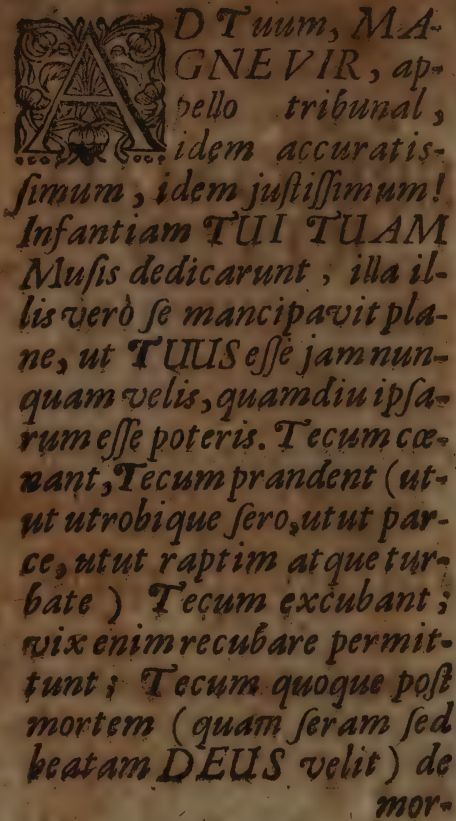 AD Tuum, MA-
GNE VIR, ap-
pello tribunal,
idem accuratis-
ſimum, idem juſtiſſimum!
Infantiam TUI TUAM
Muſis dedicarunt; illa il-
lis verò ſe mancipavit pla-
ne, ut TUUS eſſe jam nun-
quam velis, quamdiu ipſa-
rum eſſe poteris. Tecum cœ-
nant, Tecum prandent (ut-
ut utrobique ſero, utut par-
ce, utut raptim atque tur-
bate) Tecum excubant;
vix enim recubare permit-
tunt; Tecum quoque poſt
mortem (quam ſeram ſed
beatam DEUS velit) de
mor-